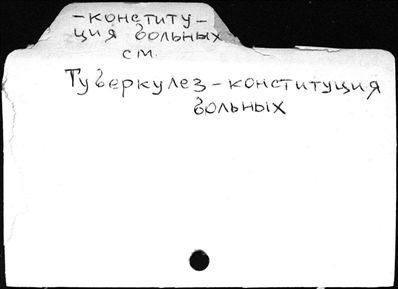 -конститу-
ция больных
см.
Туберкулез - конституция
больных